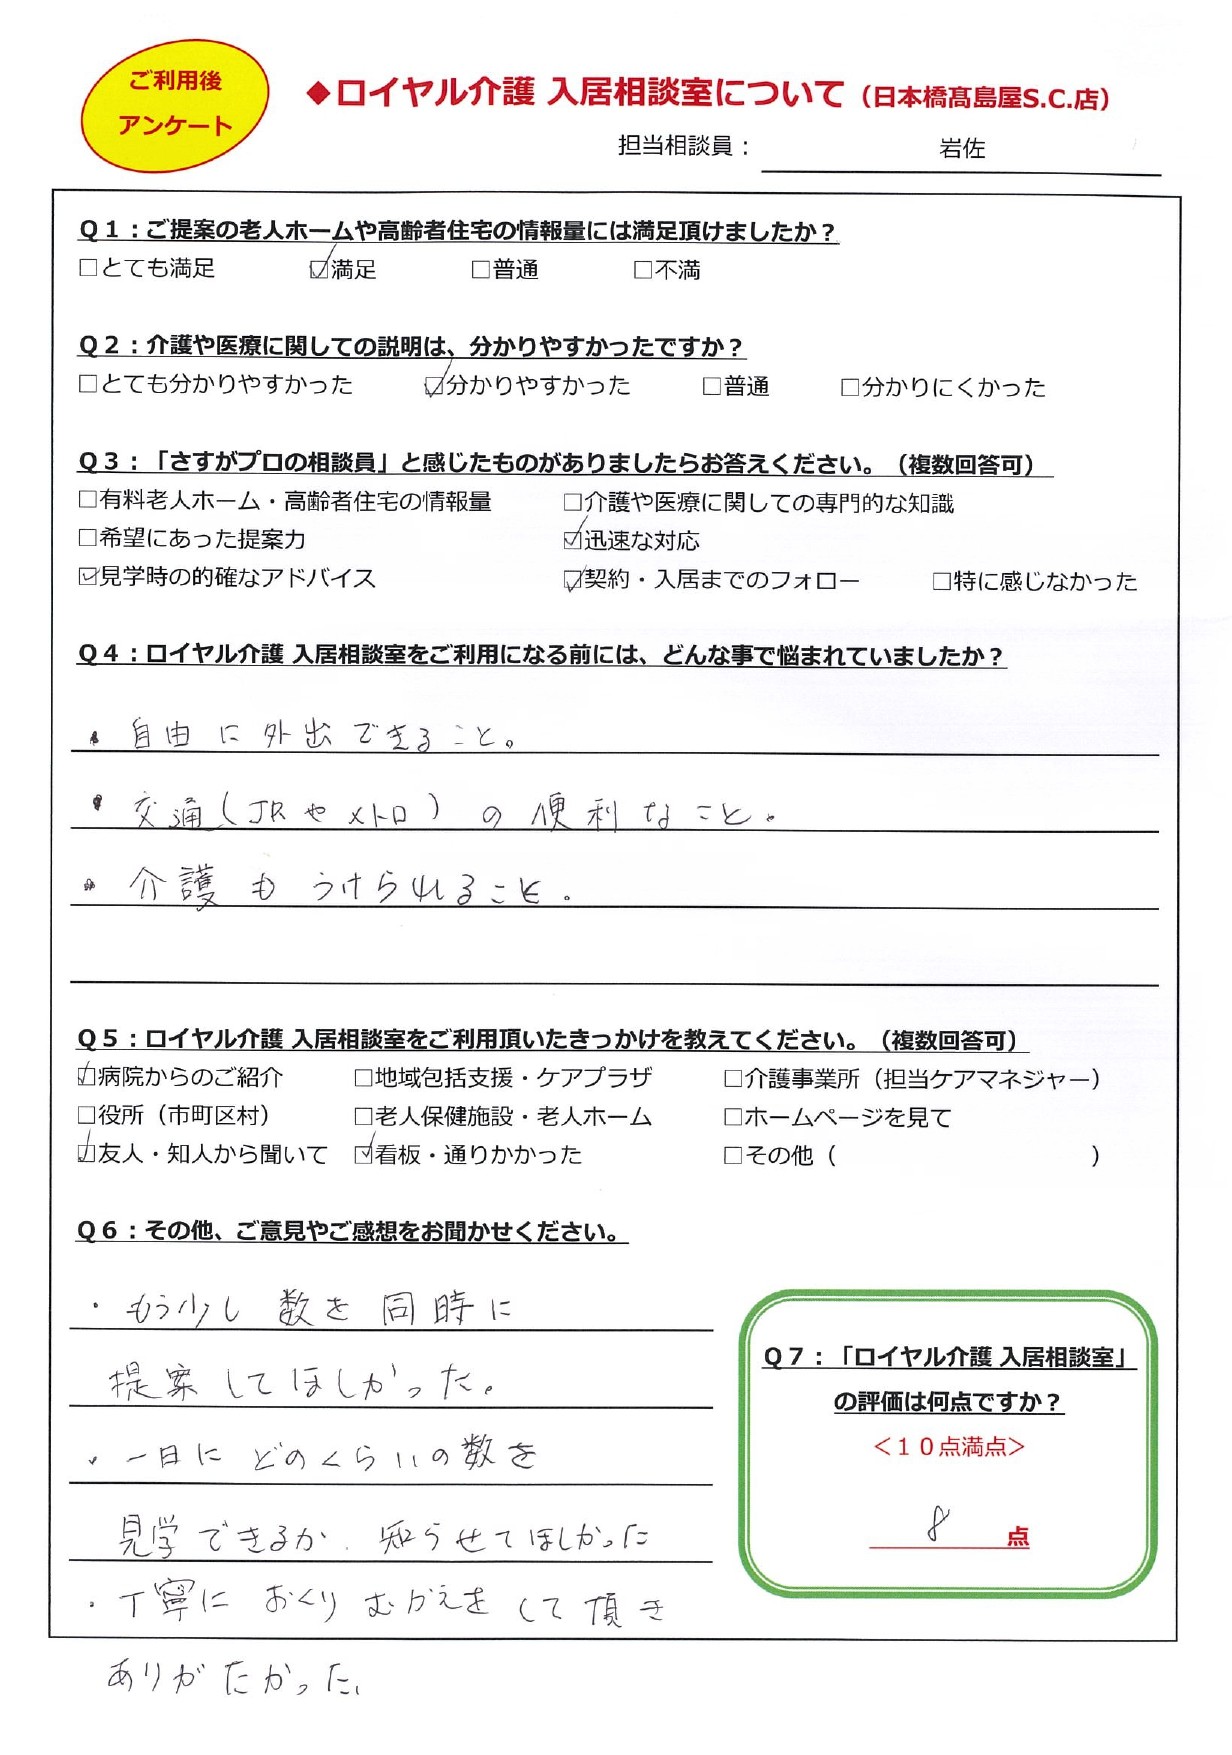 ご利用後
アンケート
◆ロイヤル介護 入居相談室について（日本橋髙島屋S.C.店）
担当相談員： 岩佐
Q1：ご提案の老人ホームや高齢者住宅の情報量には満足頂けましたか？
□とても満足 ☑満足 □普通 □不満
Q2：介護や医療に関しての説明は、分かりやすかったですか？
□とても分かりやすかった ☑分かりやすかった □普通 □分かりにくかった
Q3：「さすがプロの相談員」と感じたものがありましたらお答えください。（複数回答可）
□有料老人ホーム・高齢者住宅の情報量 □介護や医療に関しての専門的な知識
□希望にあった提案力 ☑迅速な対応
☑見学時の的確なアドバイス ☑契約・入居までのフォロー □特に感じなかった
Q4：ロイヤル介護 入居相談室をご利用になる前には、どんな事で悩まれていましたか？
・自由に外出できること。
・交通（JRやメトロ）の便利なこと。
・介護もうけられること。
Q5：ロイヤル介護 入居相談室をご利用頂いたきっかけを教えてください。（複数回答可）
☑病院からのご紹介 □地域包括支援・ケアプラザ □介護事業所（担当ケアマネジャー）
□役所（市町区村） □老人保健施設・老人ホーム □ホームページを見て
☑友人・知人から聞いて ☑看板・通りかかった □その他（ ）
Q6：その他、ご意見やご感想をお聞かせください。
・もう少し数を同時に
提案してほしかった。
・一日にどのくらいの数を
見学できるか、知らせてほしかった
・丁寧におくりむかえをして頂き
ありがたかった。
Q7：「ロイヤル介護 入居相談室」
の評価は何点ですか？
＜１０点満点＞
8 点